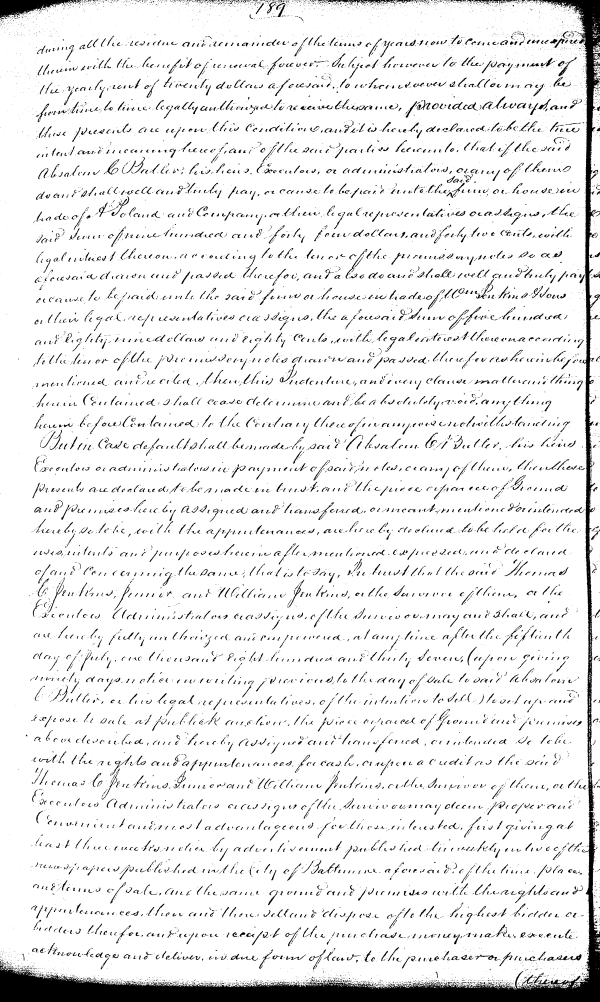 189
during all the residue and remainder of the terms of years now to come and unexpired
therein with the benefit of renewal forever. Subject however to the payment of
the yearly rent of twenty dollars aforesaid, to whomsoever shall or may be
from time to time legally authorized to receive the same, provided always, and
these presents are upon this condition, and it is hereby declared to be the true
intent and meaning hereof, and of the said parties hereunto, that if the said
Absalom C Butler, his heirs, Executors, or administrators, or any of them
do and shall well and truly pay, or cause to be paid unto the said firm, or house in
trade of A Poland and Company, or their legal representatives or assigns, the
said sum of nine hundred and forty four dollars, and forty two cents, with
legal interest thereon, according to the tenor of the promissory notes so as
aforesaid drawn and passed therefor, and also do and shall well and truly pay
or cause to be paid unto the said firm or house in trade of Wm Jenkins & Sons
or their legal representatives or assigns, the aforesaid sum of five hundred
and Eighty nine dollars and eighty Cents, with legal interest thereon according
to the tenor of the promissory notes drawn and passed therefor as herein before
mentioned and recited, then this Indenture, and every clause matter and thing
herein Contained shall cease determine and be absolutely void, any thing
herein before Contained to the Contrary thereof in anywise notwithstanding
But in Case default shall be made by said Absalom C Butler, his heirs
Executors or administrators in payment of said notes, or any of them, then these
presents are declared to be made in trust, and the piece or parcel of Ground
and premises hereby assigned and transferred, or meant, mentioned or intended
hereby so to be, with the appurtenances, are hereby declared to be held for the
uses, intents and purposes herein after mentioned, expressed, and declared
of and Concerning the same, that is to say, In trust that the said Thomas
C Jenkins, Junior, and William Jenkins, or the Survivor of them, or the
Executors Administrators or assigns, of the Survivor, may and shall, and
are hereby fully authorized and empowered, at any time after the fifteenth
day of July, one thousand Eight hundred and thirty Seven, (upon giving
ninety days notice in writing previous, to the day of sale to said Absalom
C Butler, or his legal representatives, of the intention to Sell) to set up and
expose to sale at publick auction, the piece or parcel of Ground and premises
above described, and hereby assigned and transferred, or intended so to be
with the rights and appurtenances, for cash, or upon a credit as the said
Thomas C Jenkins, Junior and William Jenkins, or the Survivor of them, or the
Executors Administrators or assigns of the Survivor may deem proper and
Convenient and most advantageous for those interested, first giving at
least three weeks notice by advertisement published triweekly in two of the
newspapers published in the City of Baltimore aforesaid, of the time, place
and terms of sale, and the same ground and premises with the rights and
appurtenances, then and there sell and dispose of to the highest bidder or
bidders therefor, and upon receipt of the purchase money make, execute
acknowledge and deliver, in due form of law, to the purchaser or purchasers
(thereof